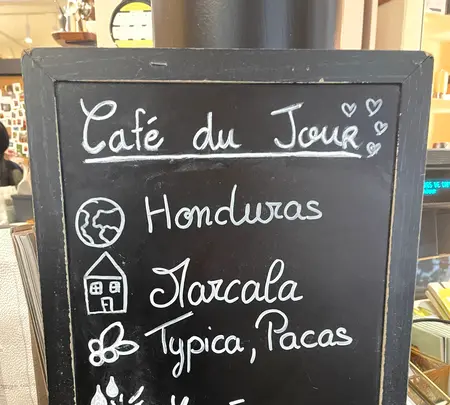 Café du Jour
Honduras
Marcala
Typica, Pacas